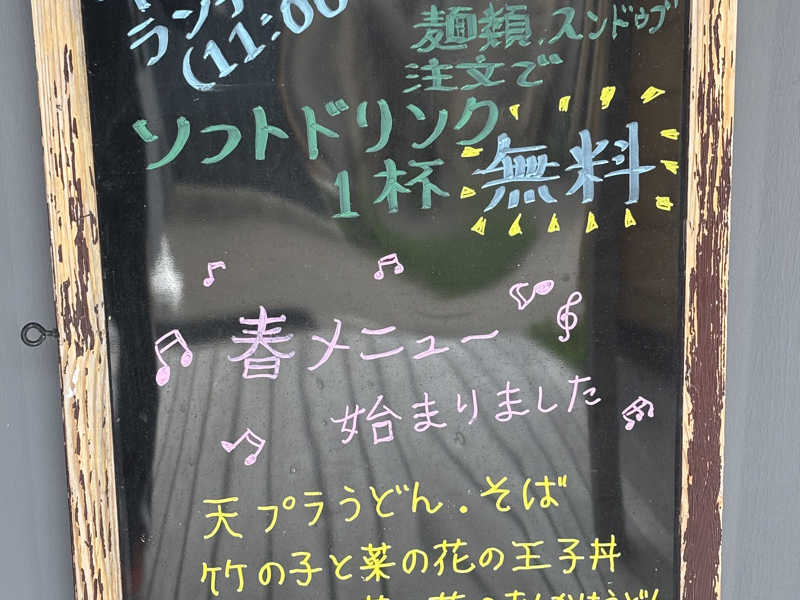 ランチ
(11:00
麺類、スンドゥブ
注文で
ソフトドリンク
1杯 無料
春メニュー
始まりました
天プラうどん.そば
竹の子と菜の花の王子丼